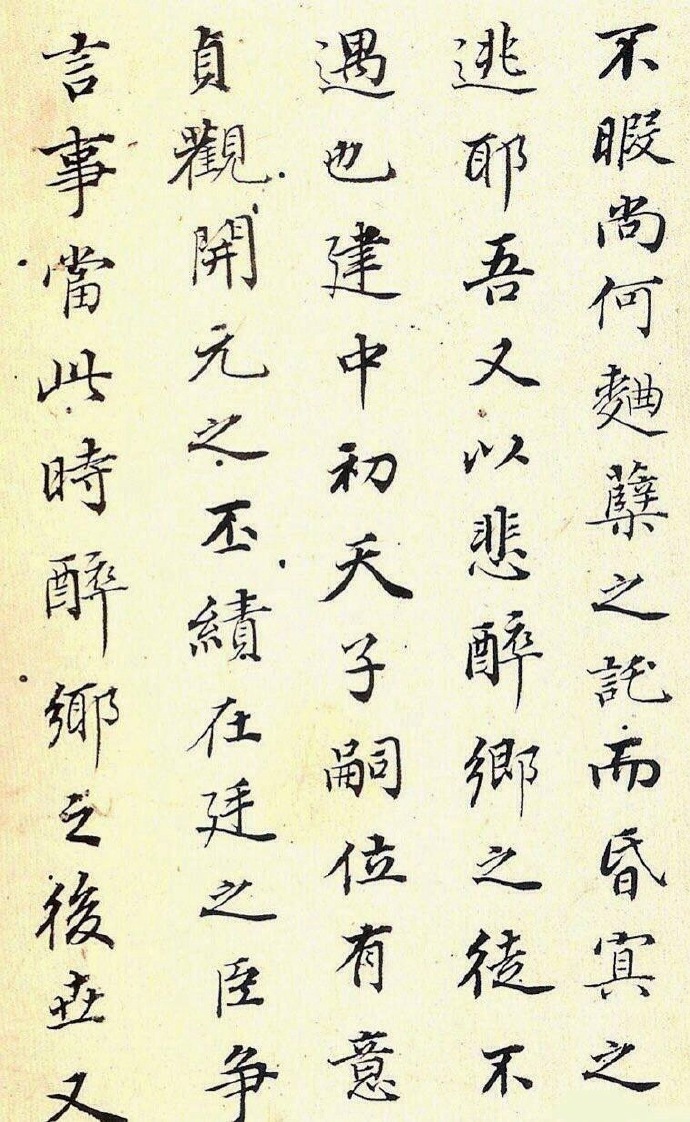 不暇尚何麯蘖之託而昏冥之
逃耶吾又以悲醉鄉之徒不
遇也建中初天子嗣位有意
貞觀開元之丕績在廷之臣争
言事當此時醉鄉之後世又